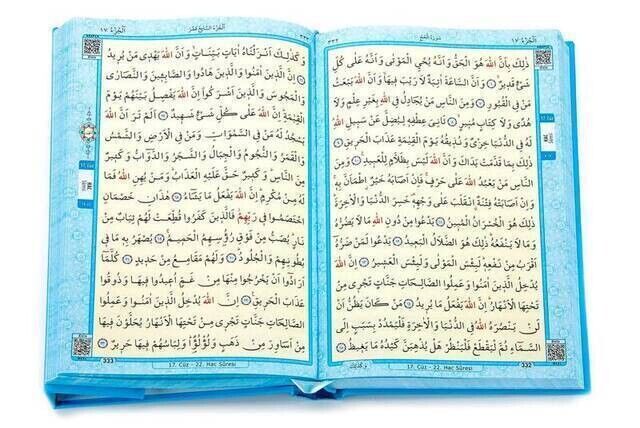 ١٧ اَلْجُزْءُ
سُورَةُ الْحَجِّ
٣٣٢
ذٰلِكَ بِاَنَّ اللّٰهَ هُوَ الْحَقُّ وَاَنَّهُ يُحْيِ الْمَوْتٰى وَاَنَّهُ عَلٰى كُلِّ
شَيْءٍ قَدِيرٌ ﴿٦﴾ وَاَنَّ السَّاعَةَ اٰتِيَةٌ لَا رَيْبَ فِيهَا وَاَنَّ اللّٰهَ يَبْعَثُ
مَنْ فِي الْقُبُورِ ﴿٧﴾ وَمِنَ النَّاسِ مَنْ يُجَادِلُ فِي اللّٰهِ بِغَيْرِ عِلْمٍ وَلَا
هُدًى وَلَا كِتَابٍ مُنِيرٍ ﴿٨﴾ ثَانِيَ عِطْفِهِ لِيُضِلَّ عَنْ سَبِيلِ اللّٰهِ
لَهُ فِي الدُّنْيَا خِزْيٌ وَنُذِيقُهُ يَوْمَ الْقِيٰمَةِ عَذَابَ الْحَرِيقِ ﴿٩﴾
ذٰلِكَ بِمَا قَدَّمَتْ يَدَاكَ وَاَنَّ اللّٰهَ لَيْسَ بِظَلَّامٍ لِلْعَبِيدِ ﴿١٠﴾ وَمِنَ
النَّاسِ مَنْ يَعْبُدُ اللّٰهَ عَلٰى حَرْفٍ فَاِنْ اَصَابَهُ خَيْرٌ اطْمَاَنَّ بِهِ
وَاِنْ اَصَابَتْهُ فِتْنَةٌ انْقَلَبَ عَلٰى وَجْهِهِ خَسِرَ الدُّنْيَا وَالْاٰخِرَةَ
ذٰلِكَ هُوَ الْخُسْرَانُ الْمُبِينُ ﴿١١﴾ يَدْعُوا مِنْ دُونِ اللّٰهِ مَا لَا يَضُرُّهُ
وَمَا لَا يَنْفَعُهُ ذٰلِكَ هُوَ الضَّلَالُ الْبَعِيدُ ﴿١٢﴾ يَدْعُوا لَمَنْ ضَرُّهُ
اَقْرَبُ مِنْ نَفْعِهِ لَبِئْسَ الْمَوْلٰى وَلَبِئْسَ الْعَشِيرُ ﴿١٣﴾ اِنَّ اللّٰهَ
يُدْخِلُ الَّذِينَ اٰمَنُوا وَعَمِلُوا الصَّالِحَاتِ جَنَّاتٍ تَجْرِي مِنْ
تَحْتِهَا الْاَنْهَارُ اِنَّ اللّٰهَ يَفْعَلُ مَا يُرِيدُ ﴿١٤﴾ مَنْ كَانَ يَظُنُّ اَنْ
لَنْ يَنْصُرَهُ اللّٰهُ فِي الدُّنْيَا وَالْاٰخِرَةِ فَلْيَمْدُدْ بِسَبَبٍ اِلَى
السَّمَاءِ ثُمَّ لْيَقْطَعْ فَلْيَنْظُرْ هَلْ يُذْهِبَنَّ كَيْدُهُ مَا يَغِيظُ ﴿١٥﴾
وَكَذٰلِكَ
17. Cüz - 22. Hac Sûresi
332
٣٣٣
اَلْجُزْءُ السَّابِعَ عَشَرَ
اَلْجُزْءُ ١٧
وَكَذٰلِكَ اَنْزَلْنَاهُ اٰيَاتٍ بَيِّنَاتٍ وَاَنَّ اللّٰهَ يَهْدِي مَنْ يُرِيدُ
﴿١٦﴾ اِنَّ الَّذِينَ اٰمَنُوا وَالَّذِينَ هَادُوا وَالصَّابِئِينَ وَالنَّصَارٰى
وَالْمَجُوسَ وَالَّذِينَ اَشْرَكُوا اِنَّ اللّٰهَ يَفْصِلُ بَيْنَهُمْ يَوْمَ
الْقِيٰمَةِ اِنَّ اللّٰهَ عَلٰى كُلِّ شَيْءٍ شَهِيدٌ ﴿١٧﴾ اَلَمْ تَرَ اَنَّ اللّٰهَ
يَسْجُدُ لَهُ مَنْ فِي السَّمٰوَاتِ وَمَنْ فِي الْاَرْضِ وَالشَّمْسُ
وَالْقَمَرُ وَالنُّجُومُ وَالْجِبَالُ وَالشَّجَرُ وَالدَّوَابُّ وَكَثِيرٌ
مِنَ النَّاسِ وَكَثِيرٌ حَقَّ عَلَيْهِ الْعَذَابُ وَمَنْ يُهِنِ اللّٰهُ فَمَا
لَهُ مِنْ مُكْرِمٍ اِنَّ اللّٰهَ يَفْعَلُ مَا يَشَاءُ ﴿١٨﴾ هٰذَانِ خَصْمَانِ
اخْتَصَمُوا فِي رَبِّهِمْ فَالَّذِينَ كَفَرُوا قُطِّعَتْ لَهُمْ ثِيَابٌ مِنْ
نَارٍ يُصَبُّ مِنْ فَوْقِ رُؤُسِهِمُ الْحَمِيمُ ﴿١٩﴾ يُصْهَرُ بِهِ مَا فِي
بُطُونِهِمْ وَالْجُلُودُ ﴿٢٠﴾ وَلَهُمْ مَقَامِعُ مِنْ حَدِيدٍ ﴿٢١﴾ كُلَّمَا
اَرَادُوا اَنْ يَخْرُجُوا مِنْهَا مِنْ غَمٍّ اُعِيدُوا فِيهَا وَذُوقُوا
عَذَابَ الْحَرِيقِ ﴿٢٢﴾ اِنَّ اللّٰهَ يُدْخِلُ الَّذِينَ اٰمَنُوا وَعَمِلُوا
الصَّالِحَاتِ جَنَّاتٍ تَجْرِي مِنْ تَحْتِهَا الْاَنْهَارُ يُحَلَّوْنَ فِيهَا
مِنْ اَسَاوِرَ مِنْ ذَهَبٍ وَلُؤْلُؤًا وَلِبَاسُهُمْ فِيهَا حَرِيرٌ ﴿٢٣﴾
17. Cüz - 22. Hac Sûresi
333